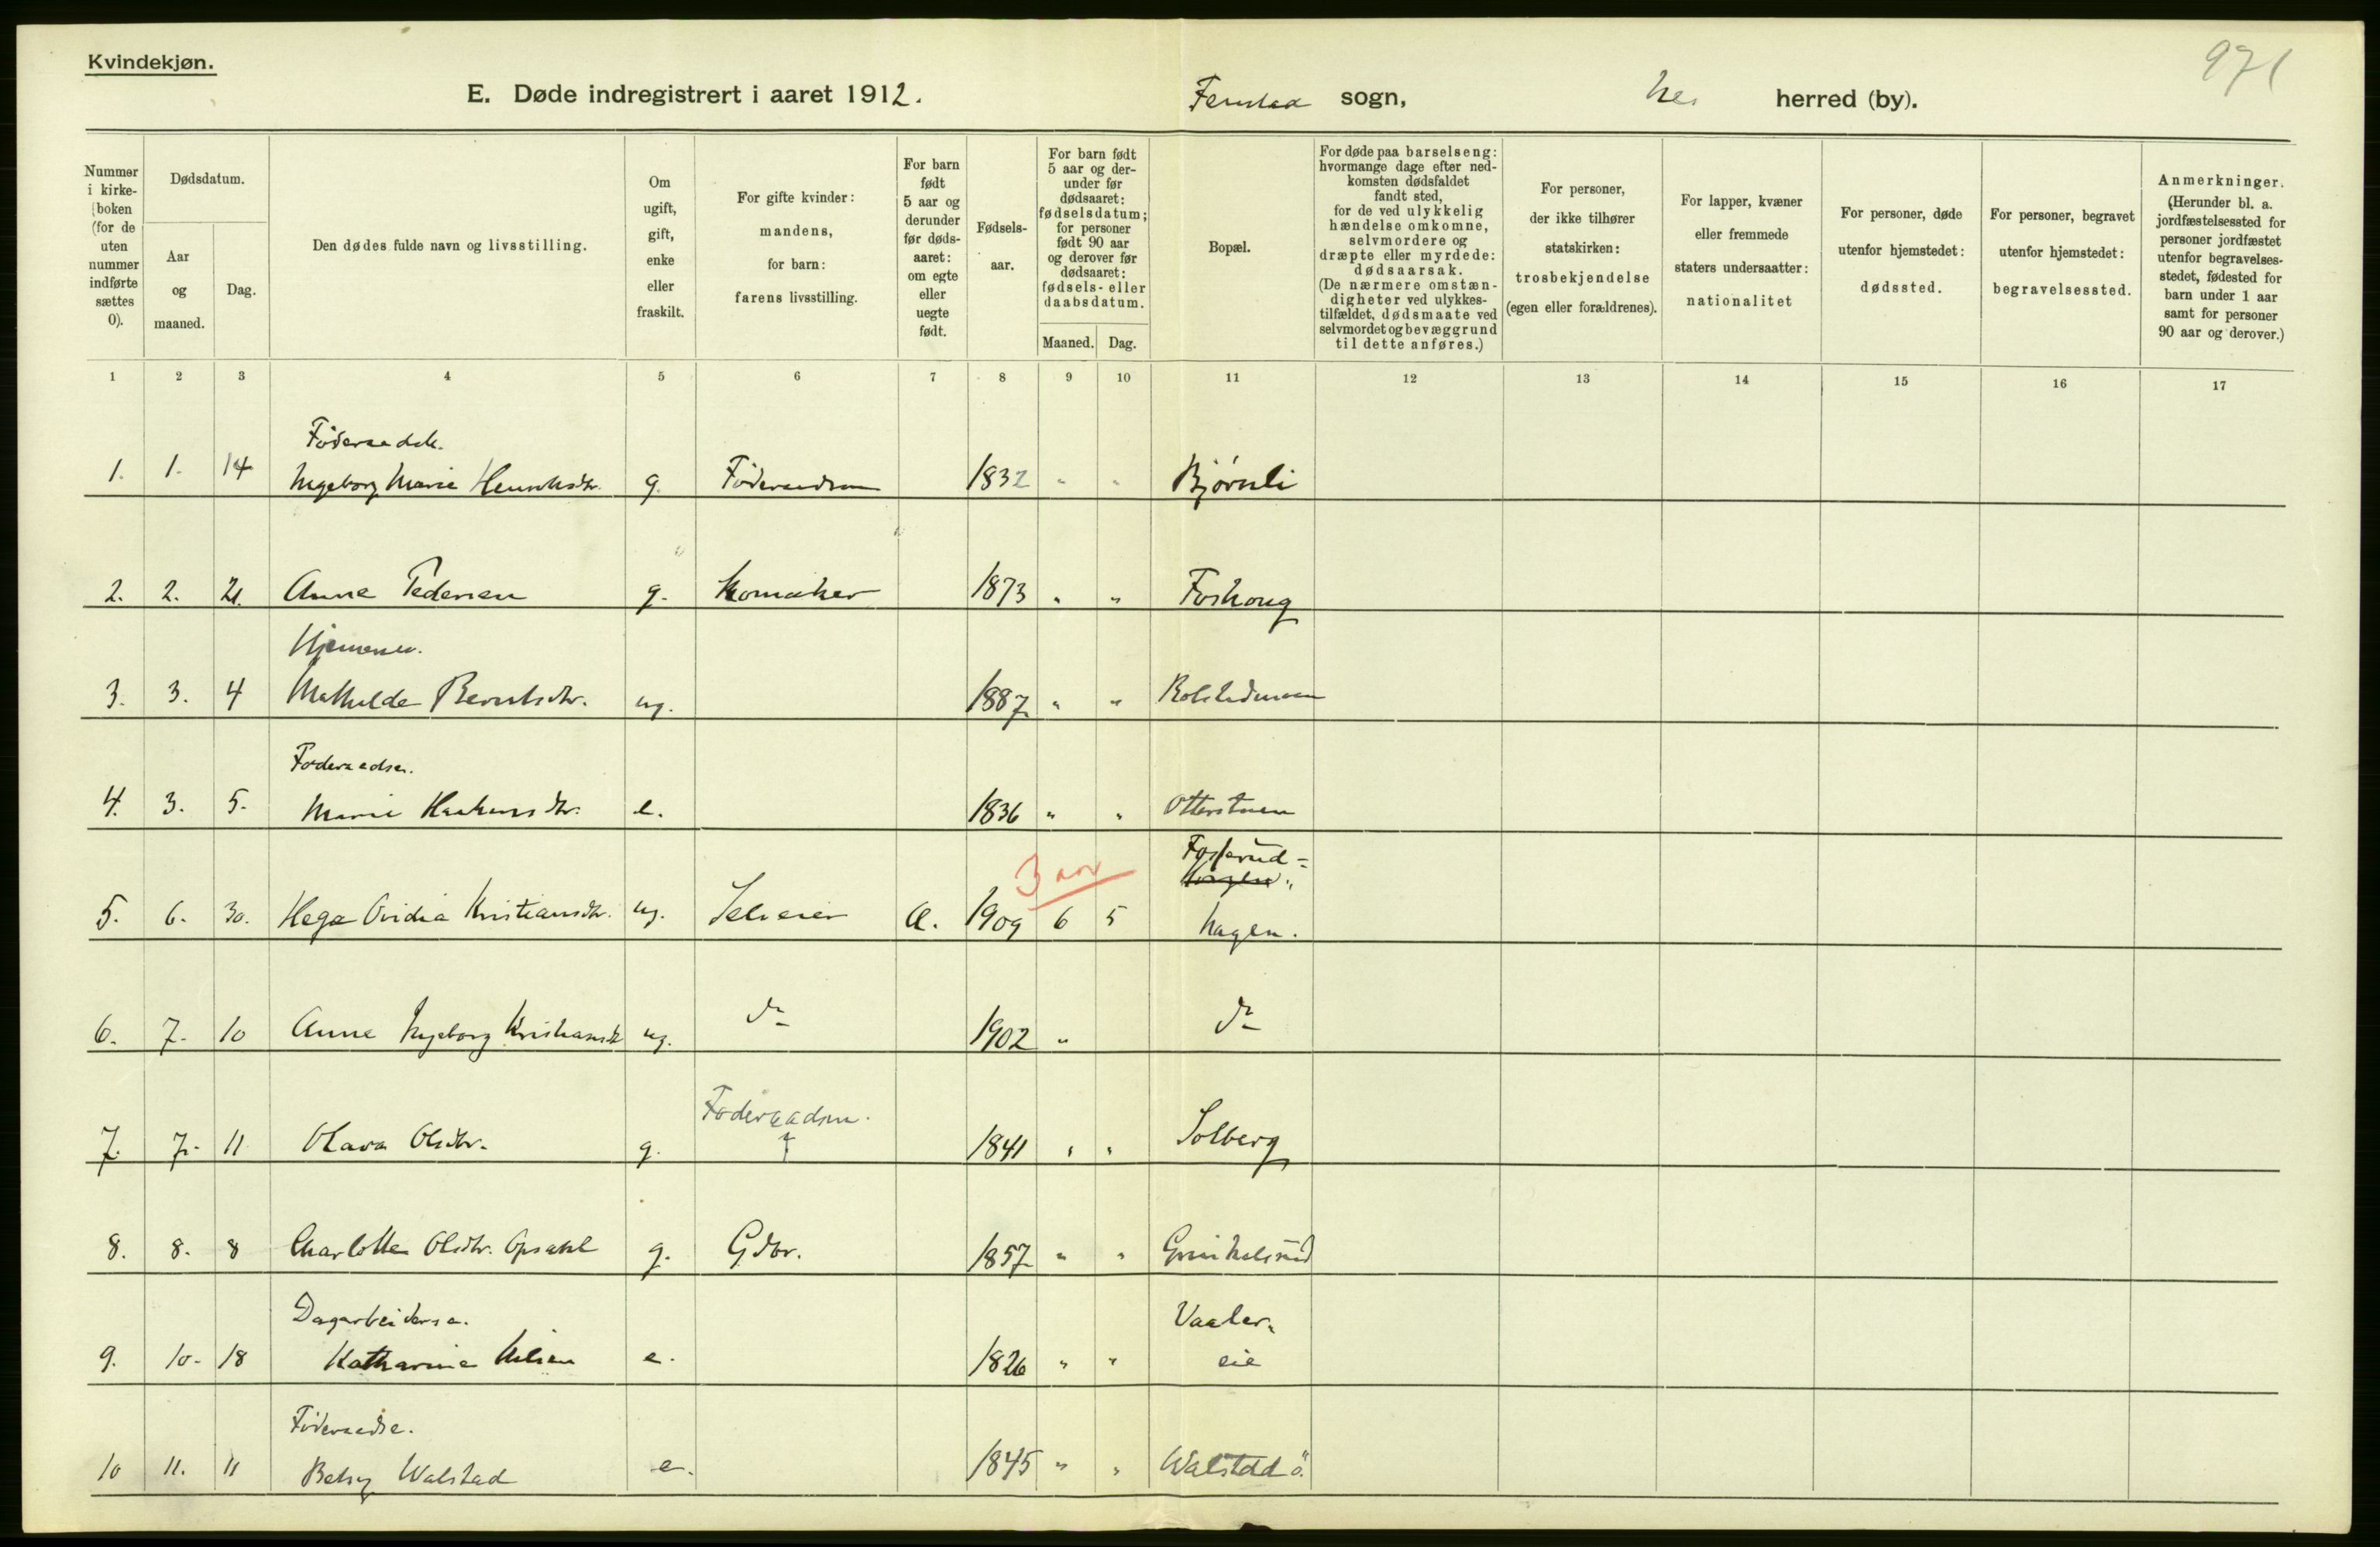 Kvindekjøn.
971
E. Døde indregistrert i aaret 1912.
Fenstad sogn, Nes herred (by).
Nummer i kirkeboken (for de uten nummer indførte sættes 0).
Dødsdatum.
Aar og maaned.
Dag.
Den dødes fulde navn og livsstilling.
Om ugift, gift, enke eller fraskilt.
For gifte kvinder: mandens, for barn: farens livsstilling.
For barn født 5 aar og derunder før dødsaaret: om egte eller uegte født.
Fødselsaar.
For barn født 5 aar og derunder før dødsaaret: fødselsdatum; for personer født 90 aar og derover før dødsaaret: fødsels- eller daabsdatum.
Maaned. Dag.
Bopæl.
For døde paa barselseng: hvormange dage efter nedkomsten dødsfaldet fandt sted, for de ved ulykkelig hændelse omkomne, selvmordere og dræpte eller myrdede: dødsaarsak. (De nærmere omstændigheter ved ulykkestilfældet, dødsmaate ved selvmordet og bevæggrund til dette anføres.)
For personer, der ikke tilhører statskirken: trosbekjendelse (egen eller forældrenes).
For lapper, kvæner eller fremmede staters undersaatter: nationalitet
For personer, døde utenfor hjemstedet: dødssted.
For personer, begravet utenfor hjemstedet: begravelsessted.
Anmerkninger. (Herunder bl. a. jordfæstelsessted for personer jordfæstet utenfor begravelsesstedet, fødested for barn under 1 aar samt for personer 90 aar og derover.)
1 2 3 4 5 6 7 8 9 10 11 12 13 14 15 16 17
Føderaadsk.
1. 1. 14 Ingeborg Marie Henriksdtr. g. Føderaadsm 1832 " " Bjørnli
2. 2. 21. Anne Pedersen g. Skomaker 1873 " " Foshoug
Hjemmev.
3. 3. 4 Mathilde Berntsdtr. ug. 1887 " " Rolstadmoen
Føderaadse.
4. 3. 5. Marie Haakensdtr. e. 1836 " " Otterstuen
3 aar
Fosserud=
5. 6. 30. Hega Ovidia Kristiansdtr. ug. Selveier E. 1909 6 5 hagen.
6. 7. 10 Anne Ingeborg Kristiansdtr ug. do 1902 " do
Føderaadsm.
7. 7. 11 Olava Olsdtr. g. 1841 " " Solberg
8. 8. 8 Charlotte Olsdtr. Opsahl g. Gdbr. 1857 " " Grinkelsrud
Dagarbeiderse. Vaaler-
9. 10. 18 Katharine Nilsen e. 1826 " " eie
Føderaadse.
10 11. 11 Betsy Walstad e. 1845 " " Walstad ö.